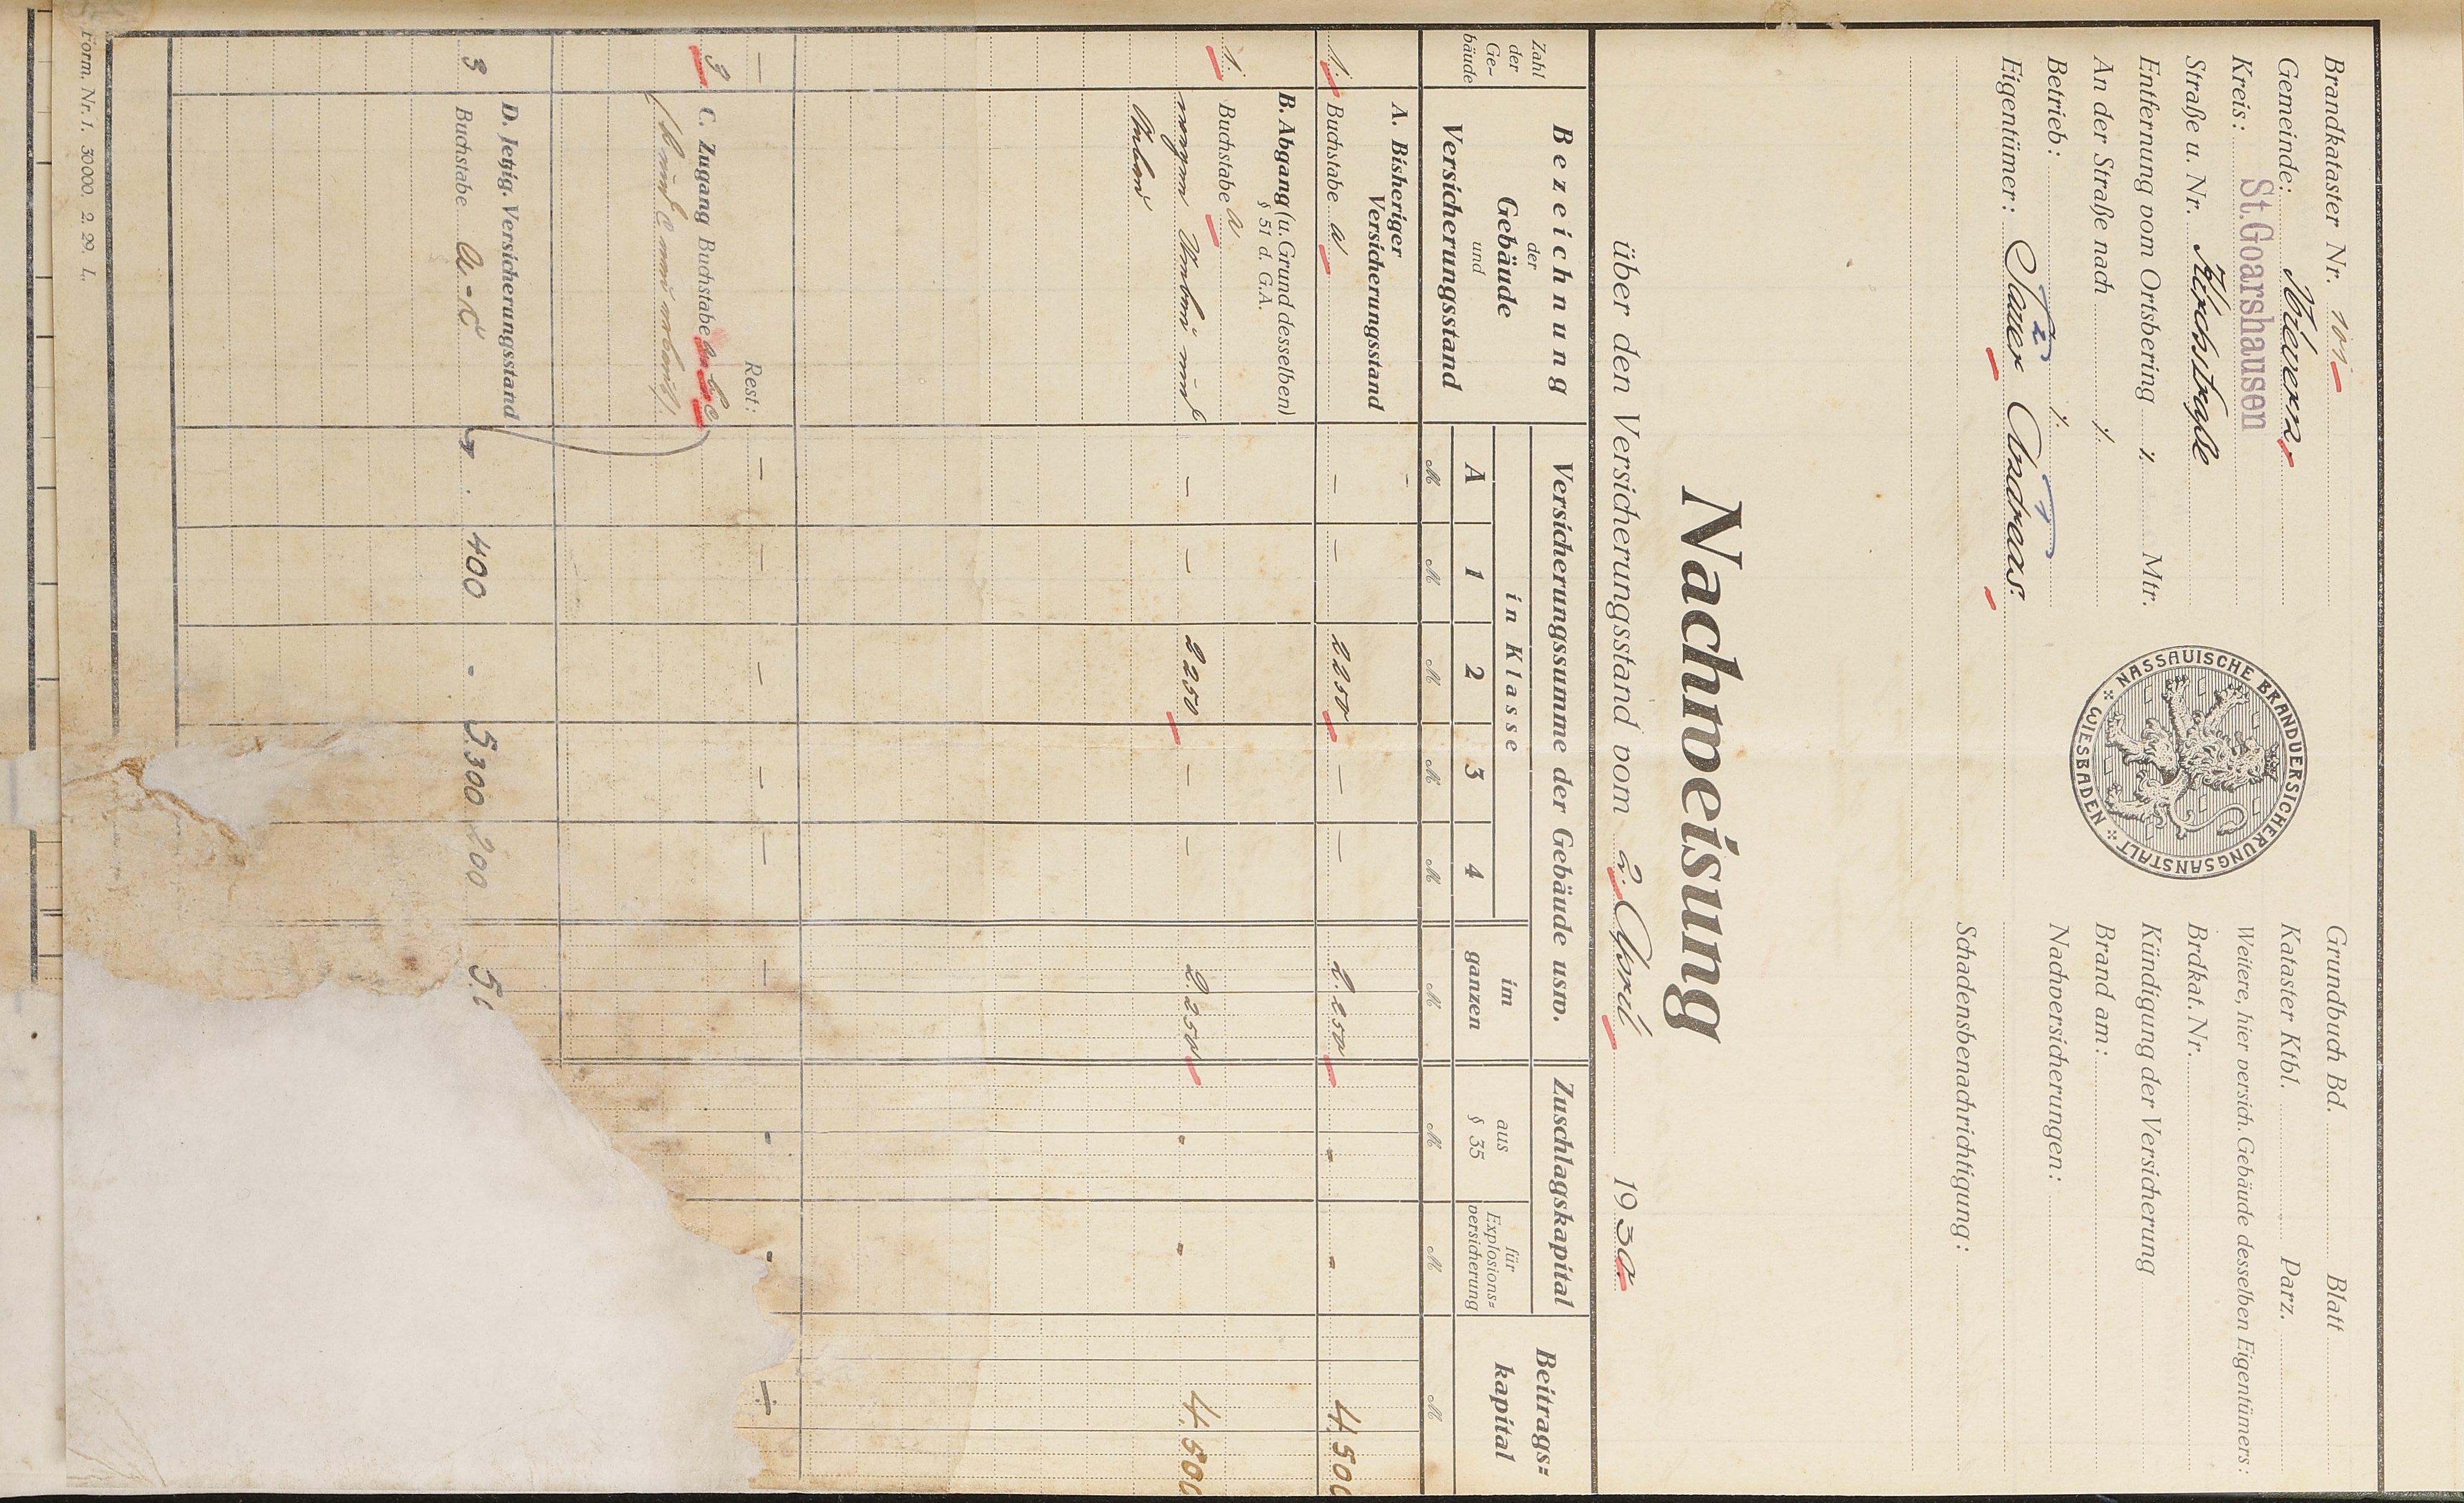 Brandkataster Nr. 101
Gemeinde: Wievern
Kreis: St. Goarshausen
Straße u. Nr. Kirchstraße
Entfernung vom Ortsbering ٪ Mtr.
An der Straße nach ٪.
Betrieb: ٪.
Eigentümer: Sauer Andreas.
NASSAUISCHE BRANDVERSICHERUNGSANSTALT
WIESBADEN
Grundbuch Bd. Blatt
Kataster Ktbl. Parz.
Weitere, hier versich. Gebäude desselben Eigentümers:
Brdkat. Nr.
Kündigung der Versicherung
Brand am:
Nachversicherungen:
Schadensbenachrichtigung:
Nachweisung
über den Versicherungsstand vom 2. April 1930.
Zahl der Ge-bäude
Bezeichnung der Gebäude und Versicherungsstand
Versicherungssumme der Gebäude usw.
in Klasse
A 1 2 3 4
im ganzen
Zuschlagskapital
aus § 35
für Explosions-versicherung
Beitrags-kapital
M M M M M M M M M
A. Bisheriger Versicherungsstand
1. Buchstabe a — — 2250 — — 2.250 - - 4.500
B. Abgang (u. Grund desselben)
§ 51 d. G.A.
1. Buchstabe a
wegen Umbau und — — 2250 — — 2.250 - - 4.500
— Rest: — — — — — — - - —
3 C. Zugang Buchstabe a. b. c
D. Jetzig. Versicherungsstand
3 Buchstabe a-c . 400 - 5.300 200
Form. Nr. 1. 3000. 2. 29. L.